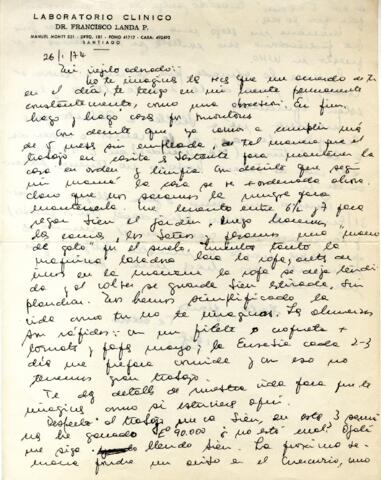 LABORATORIO CLINICO
DR. FRANCISCO LANDA P.
MANUEL MONTT 521 - DPTO. 181 - FONO 41717 - CASA: 490492
SANTIAGO
26/1/74
Mi viejito adorado:
No te imaginas las veces que me acuerdo de ti
en el día, te tengo en mi mente permanente
constantemente, como una obsesión. En fin,
hago y hago cosas por montones
Con decirte que ya vamos a cumplir más
de 1 mes sin empleada, de tal manera que el
trabajo en casita es bastante para mantener la
casa en orden y limpia. Con decirte que según
mi mamá la casa se ve + ordenada ahora.
Claro que nos sacamos la mugre para
mantenerla. Me levanto entre 6½ y 7 para
regar bien el jardín, luego hacemos
las camas, los baños y pasamos una "mano
de gato" en el suelo. Mientras tanto la
máquina lavadora lava la ropa, antes de
irnos en la mañana la ropa se deja tendi
da y al volver se guarda bien estirada, sin
planchar. Nos hemos simplificado la
vida como tú no te imaginas. Los almuerzos
son rápidos: con un filete o croqueta +
tomates y papas mayo; la Eusebia cada 2-3
días me prepara comida y con eso no
tenemos gran trabajo.
Te doy detalles de nuestra vida para que te
imagines como si estuvieras aquí.
Respecto al trabajo marca bien, en estas 3 sema
nas he ganado Eº 90.000 ¿no está mal? Ojalá
me siga yendo bien. La próxima se-
mana pondré un aviso en el Mercurio, uno